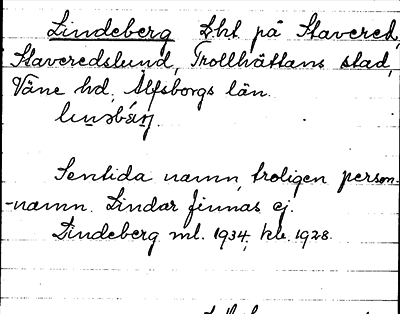 Lindeberg Lht på Stavered,
Stavereds lund, Trollhättans stad,
Väne hd, Älfsborgs län.
Sentida namn, troligen person-
-namn. Lindar finnas ej.
Lindeberg ml. 1934, kb. 1928.